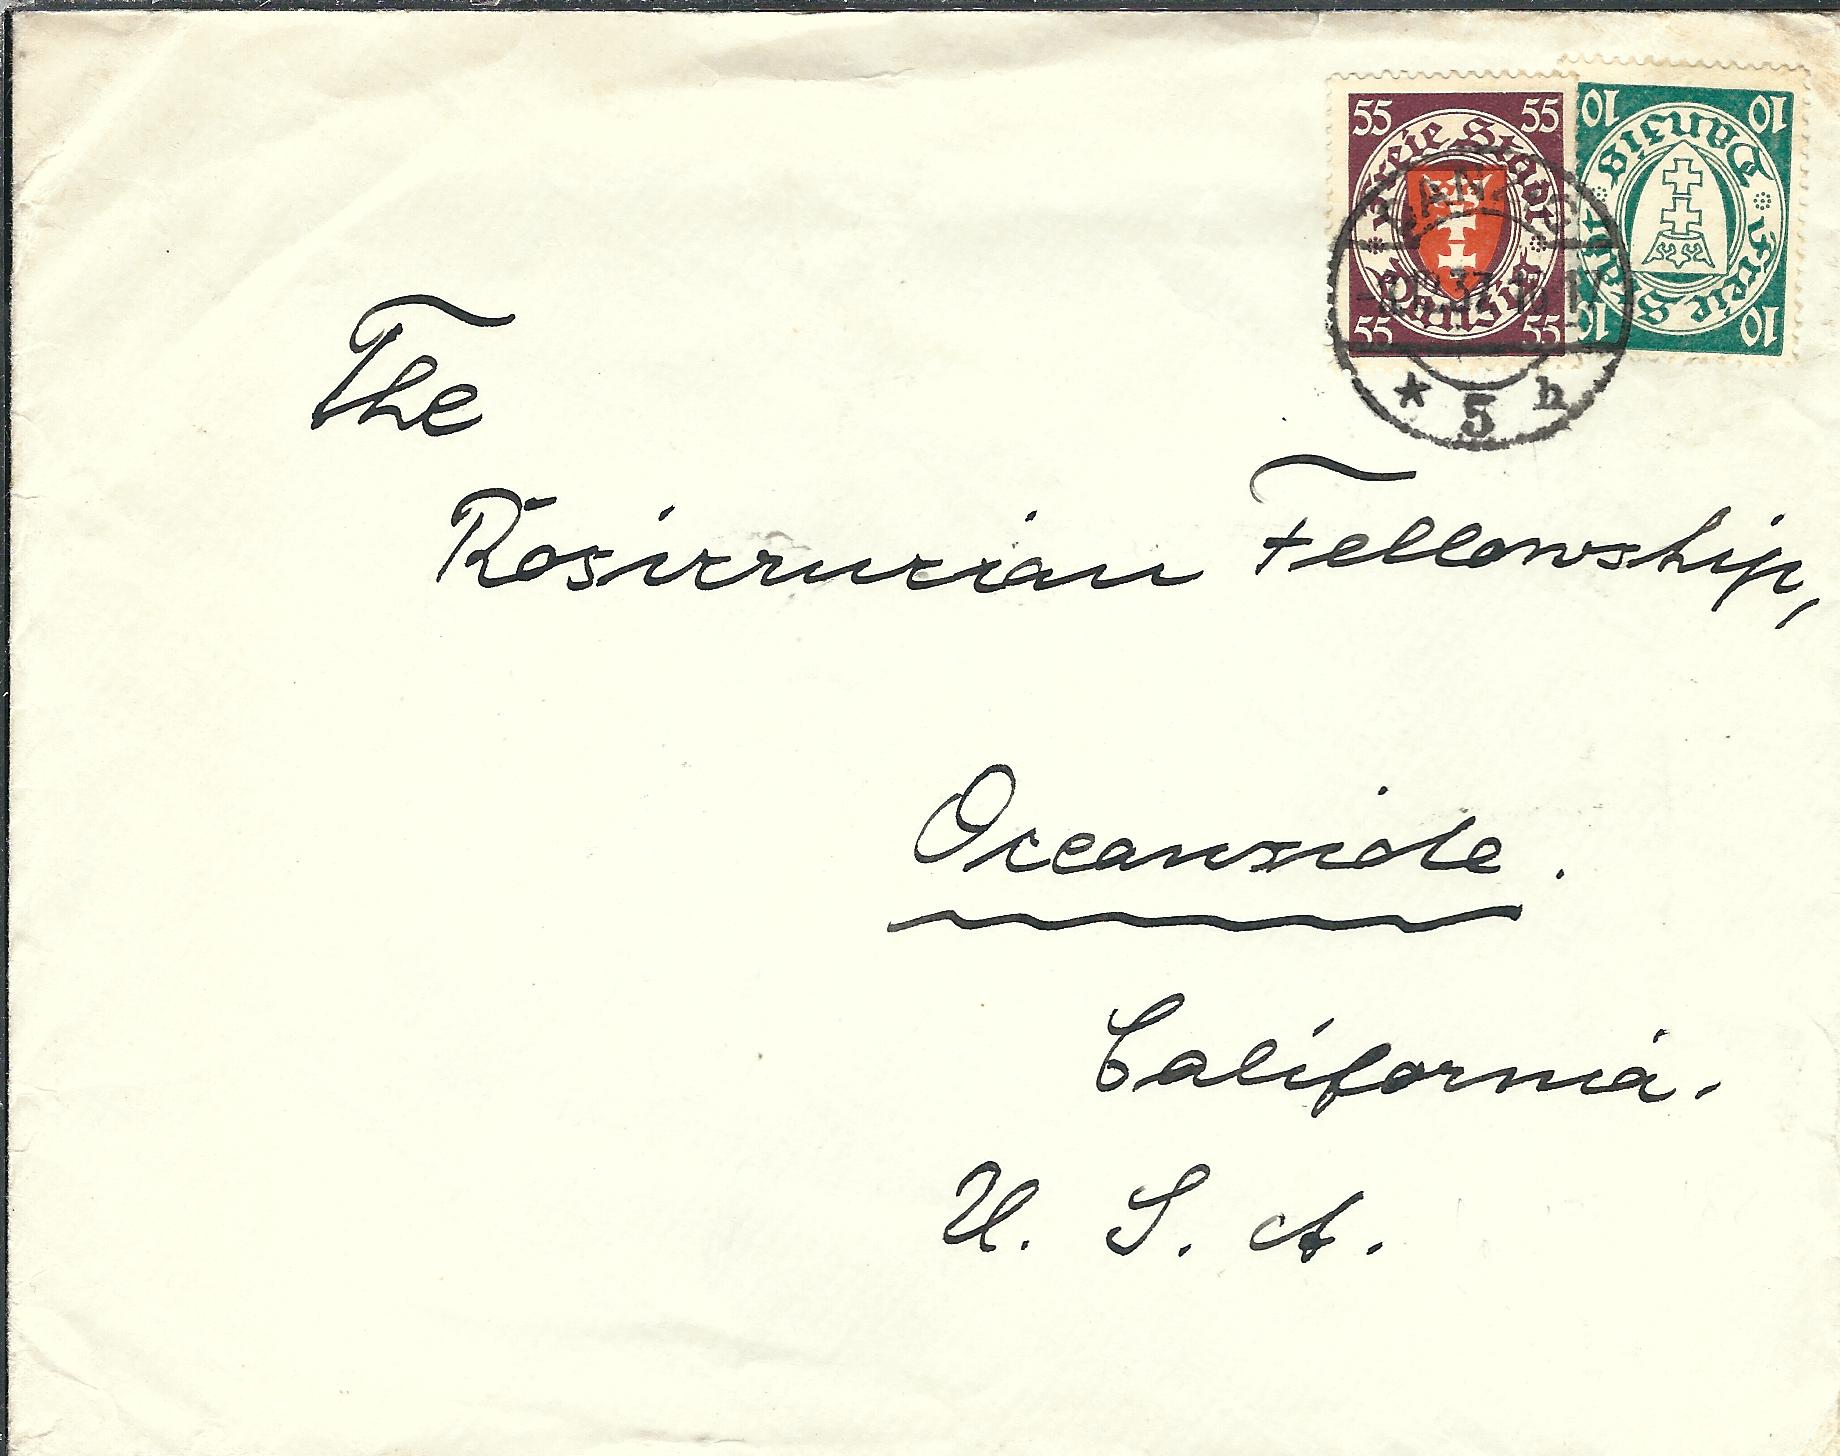 55 55
Freie Stadt
Danzig
55 55
10 10
Freie Stadt
Danzig
10 10
DANZIG
* 5 h
The
Rosicrucian Fellowship,
Oceanside.
California.
U. S. A.